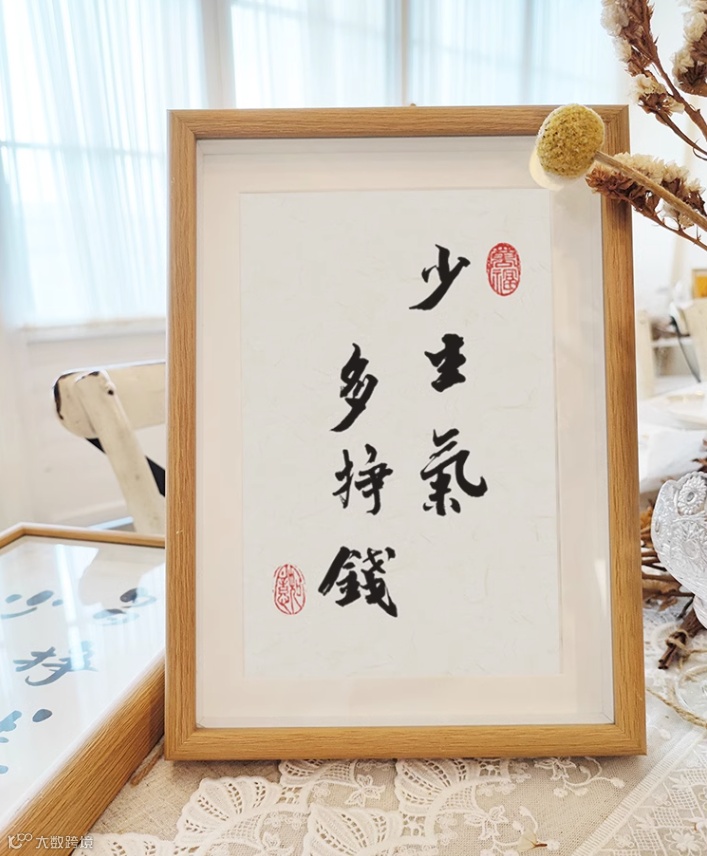 少生氣
多挣錢
大数跨境